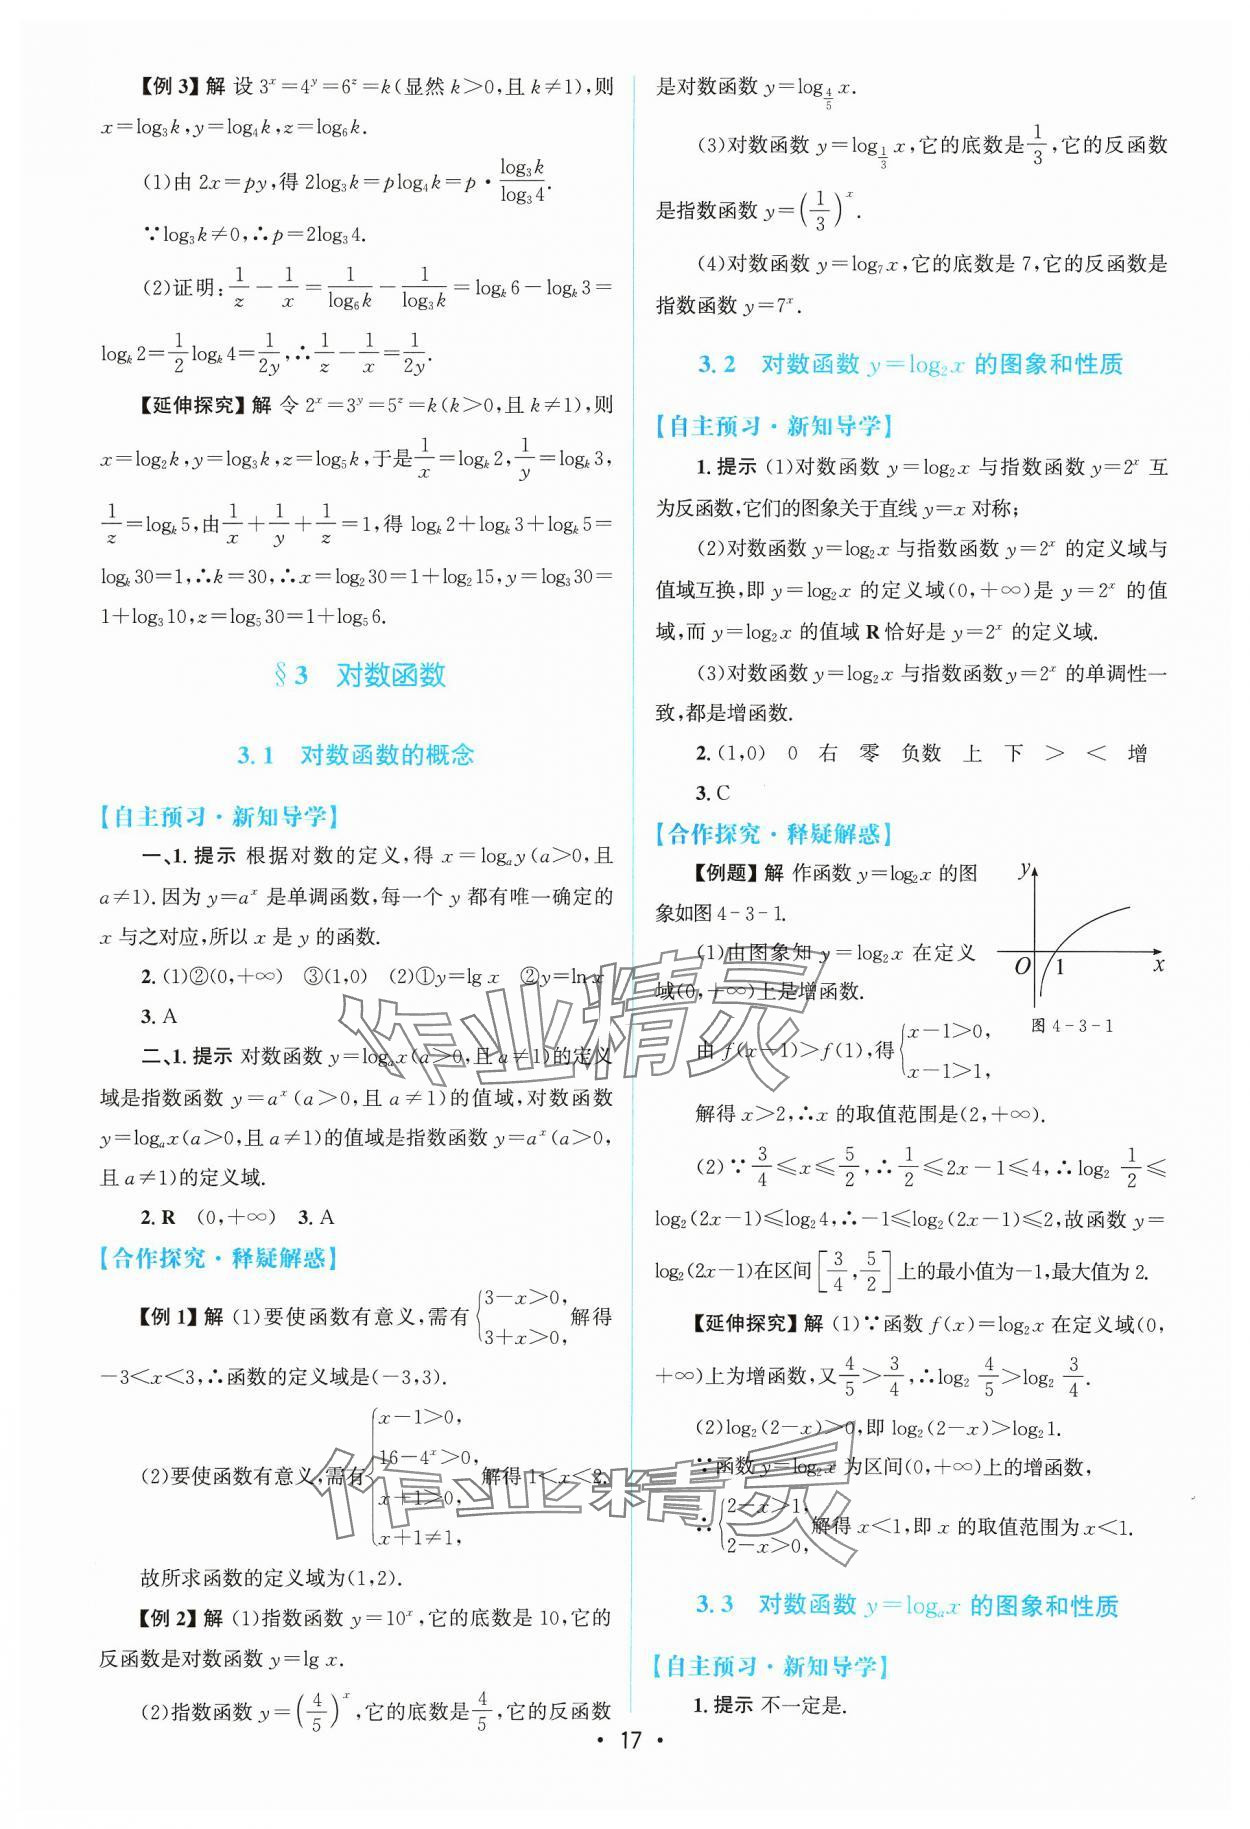 【例3】解 设 3ˣ=4ʸ=6ᶻ=k(显然 k>0,且 k≠1),则
x=log₃k,y=log₄k,z=log₆k.
(1)由 2x=py,得 2log₃k=plog₄k=p·log₃k/log₃4.
∵log₃k≠0,∴p=2log₃4.
(2)证明:1/z-1/x=1/log₆k-1/log₃k=logₖ6-logₖ3=
logₖ2=1/2logₖ4=1/2y,∴1/z-1/x=1/2y.
【延伸探究】解 令 2ˣ=3ʸ=5ᶻ=k(k>0,且 k≠1),则
x=log₂k,y=log₃k,z=log₅k,于是1/x=logₖ2,1/y=logₖ3,
1/z=logₖ5,由1/x+1/y+1/z=1,得 logₖ2+logₖ3+logₖ5=
logₖ30=1,∴k=30,∴x=log₂30=1+log₂15,y=log₃30=
1+log₃10,z=log₅30=1+log₅6.
§3 对数函数
3.1 对数函数的概念
【自主预习·新知导学】
一、1.提示 根据对数的定义,得 x=logₐy(a>0,且
a≠1).因为 y=aˣ 是单调函数,每一个 y 都有唯一确定的
x 与之对应,所以 x 是 y 的函数.
2.(1)②(0,+∞) ③(1,0) (2)①y=lg x ②y=ln x
3.A
二、1.提示 对数函数 y=logₐx(a>0,且 a≠1)的定义
域是指数函数 y=aˣ(a>0,且 a≠1)的值域,对数函数
y=logₐx(a>0,且 a≠1)的值域是指数函数 y=aˣ(a>0,
且 a≠1)的定义域.
2.R (0,+∞) 3.A
【合作探究·释疑解惑】
【例1】解 (1)要使函数有意义,需有{3-x>0, 3+x>0,解得
-3<x<3,∴函数的定义域是(-3,3).
(2)要使函数有意义,需有{x-1>0, 16-4ˣ>0, x+1>0, x+1≠1,解得 1<x<2.
故所求函数的定义域为(1,2).
【例2】解 (1)指数函数 y=10ˣ,它的底数是 10,它的
反函数是对数函数 y=lg x.
(2)指数函数 y=(4/5)ˣ,它的底数是4/5,它的反函数
是对数函数 y=log_{4/5} x.
(3)对数函数 y=log_{1/3} x,它的底数是1/3,它的反函数
是指数函数 y=(1/3)ˣ.
(4)对数函数 y=log₇x,它的底数是 7,它的反函数是
指数函数 y=7ˣ.
3.2 对数函数 y=log₂x 的图象和性质
【自主预习·新知导学】
1.提示 (1)对数函数 y=log₂x 与指数函数 y=2ˣ 互
为反函数,它们的图象关于直线 y=x 对称;
(2)对数函数 y=log₂x 与指数函数 y=2ˣ 的定义域与
值域互换,即 y=log₂x 的定义域(0,+∞)是 y=2ˣ 的值
域,而 y=log₂x 的值域 R恰好是 y=2ˣ 的定义域.
(3)对数函数 y=log₂x 与指数函数 y=2ˣ 的单调性一
致,都是增函数.
2.(1,0) 0 右 零 负数 上 下 > < 增
3.C
【合作探究·释疑解惑】
【例题】解 作函数 y=log₂x 的图
象如图 4-3-1.
(1)由图象知 y=log₂x 在定义
域(0,+∞)上是增函数.
y
O 1 x
图 4-3-1
由 f(x-1)>f(1),得{x-1>0, x-1>1,
解得 x>2,∴x 的取值范围是(2,+∞).
(2)∵3/4≤x≤5/2,∴1/2≤2x-1≤4,∴log₂ 1/2≤
log₂(2x-1)≤log₂4,∴-1≤log₂(2x-1)≤2,故函数 y=
log₂(2x-1)在区间[3/4,5/2]上的最小值为-1,最大值为 2.
【延伸探究】解 (1)∵函数 f(x)=log₂x 在定义域(0,
+∞)上为增函数,又4/5>3/4,∴log₂ 4/5>log₂ 3/4.
(2)log₂(2-x)>0,即 log₂(2-x)>log₂1.
∵函数 y=log₂x 为区间(0,+∞)上的增函数,
∴{2-x>1, 2-x>0,解得 x<1,即 x 的取值范围为 x<1.
3.3 对数函数 y=logₐx 的图象和性质
【自主预习·新知导学】
1.提示 不一定是.
·17·
作业精灵
作业精灵